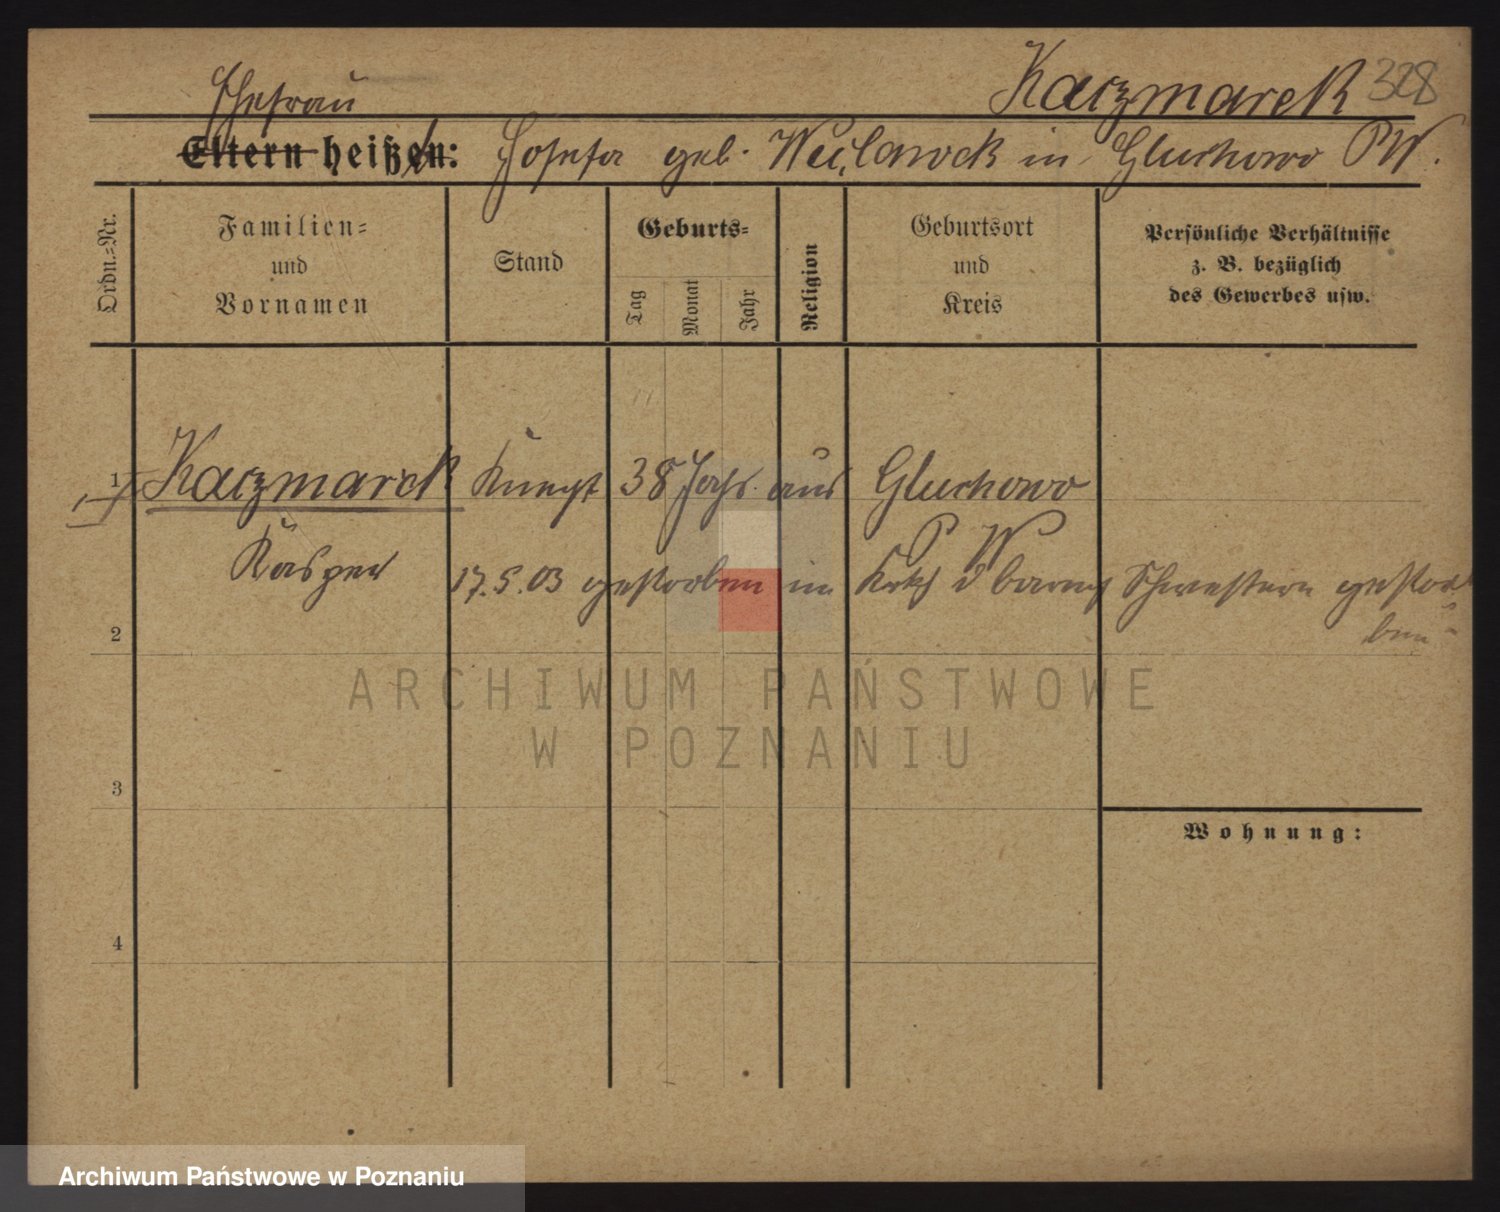 Kaczmarek 328
Ehefrau
Eltern heißen: Josefa geb. in Gluchowo PW.
Ordn.-Nr.
Familien-
und
Vornamen
Stand
Geburts-
Tag
Monat
Jahr
Religion
Geburtsort
und
Kreis
Persönliche Verhältnisse
z. B. bezüglich
des Gewerbes usw.
1 Kaczmarek Knecht 38 Jahr aus Gluchowo
P W
Kasper 17.5.03 gestorben im Schwestern gestor-
ben
2
ARCHIWUM PAŃSTWOWE
W POZNANIU
3
Wohnung:
4
Archiwum Państwowe w Poznaniu